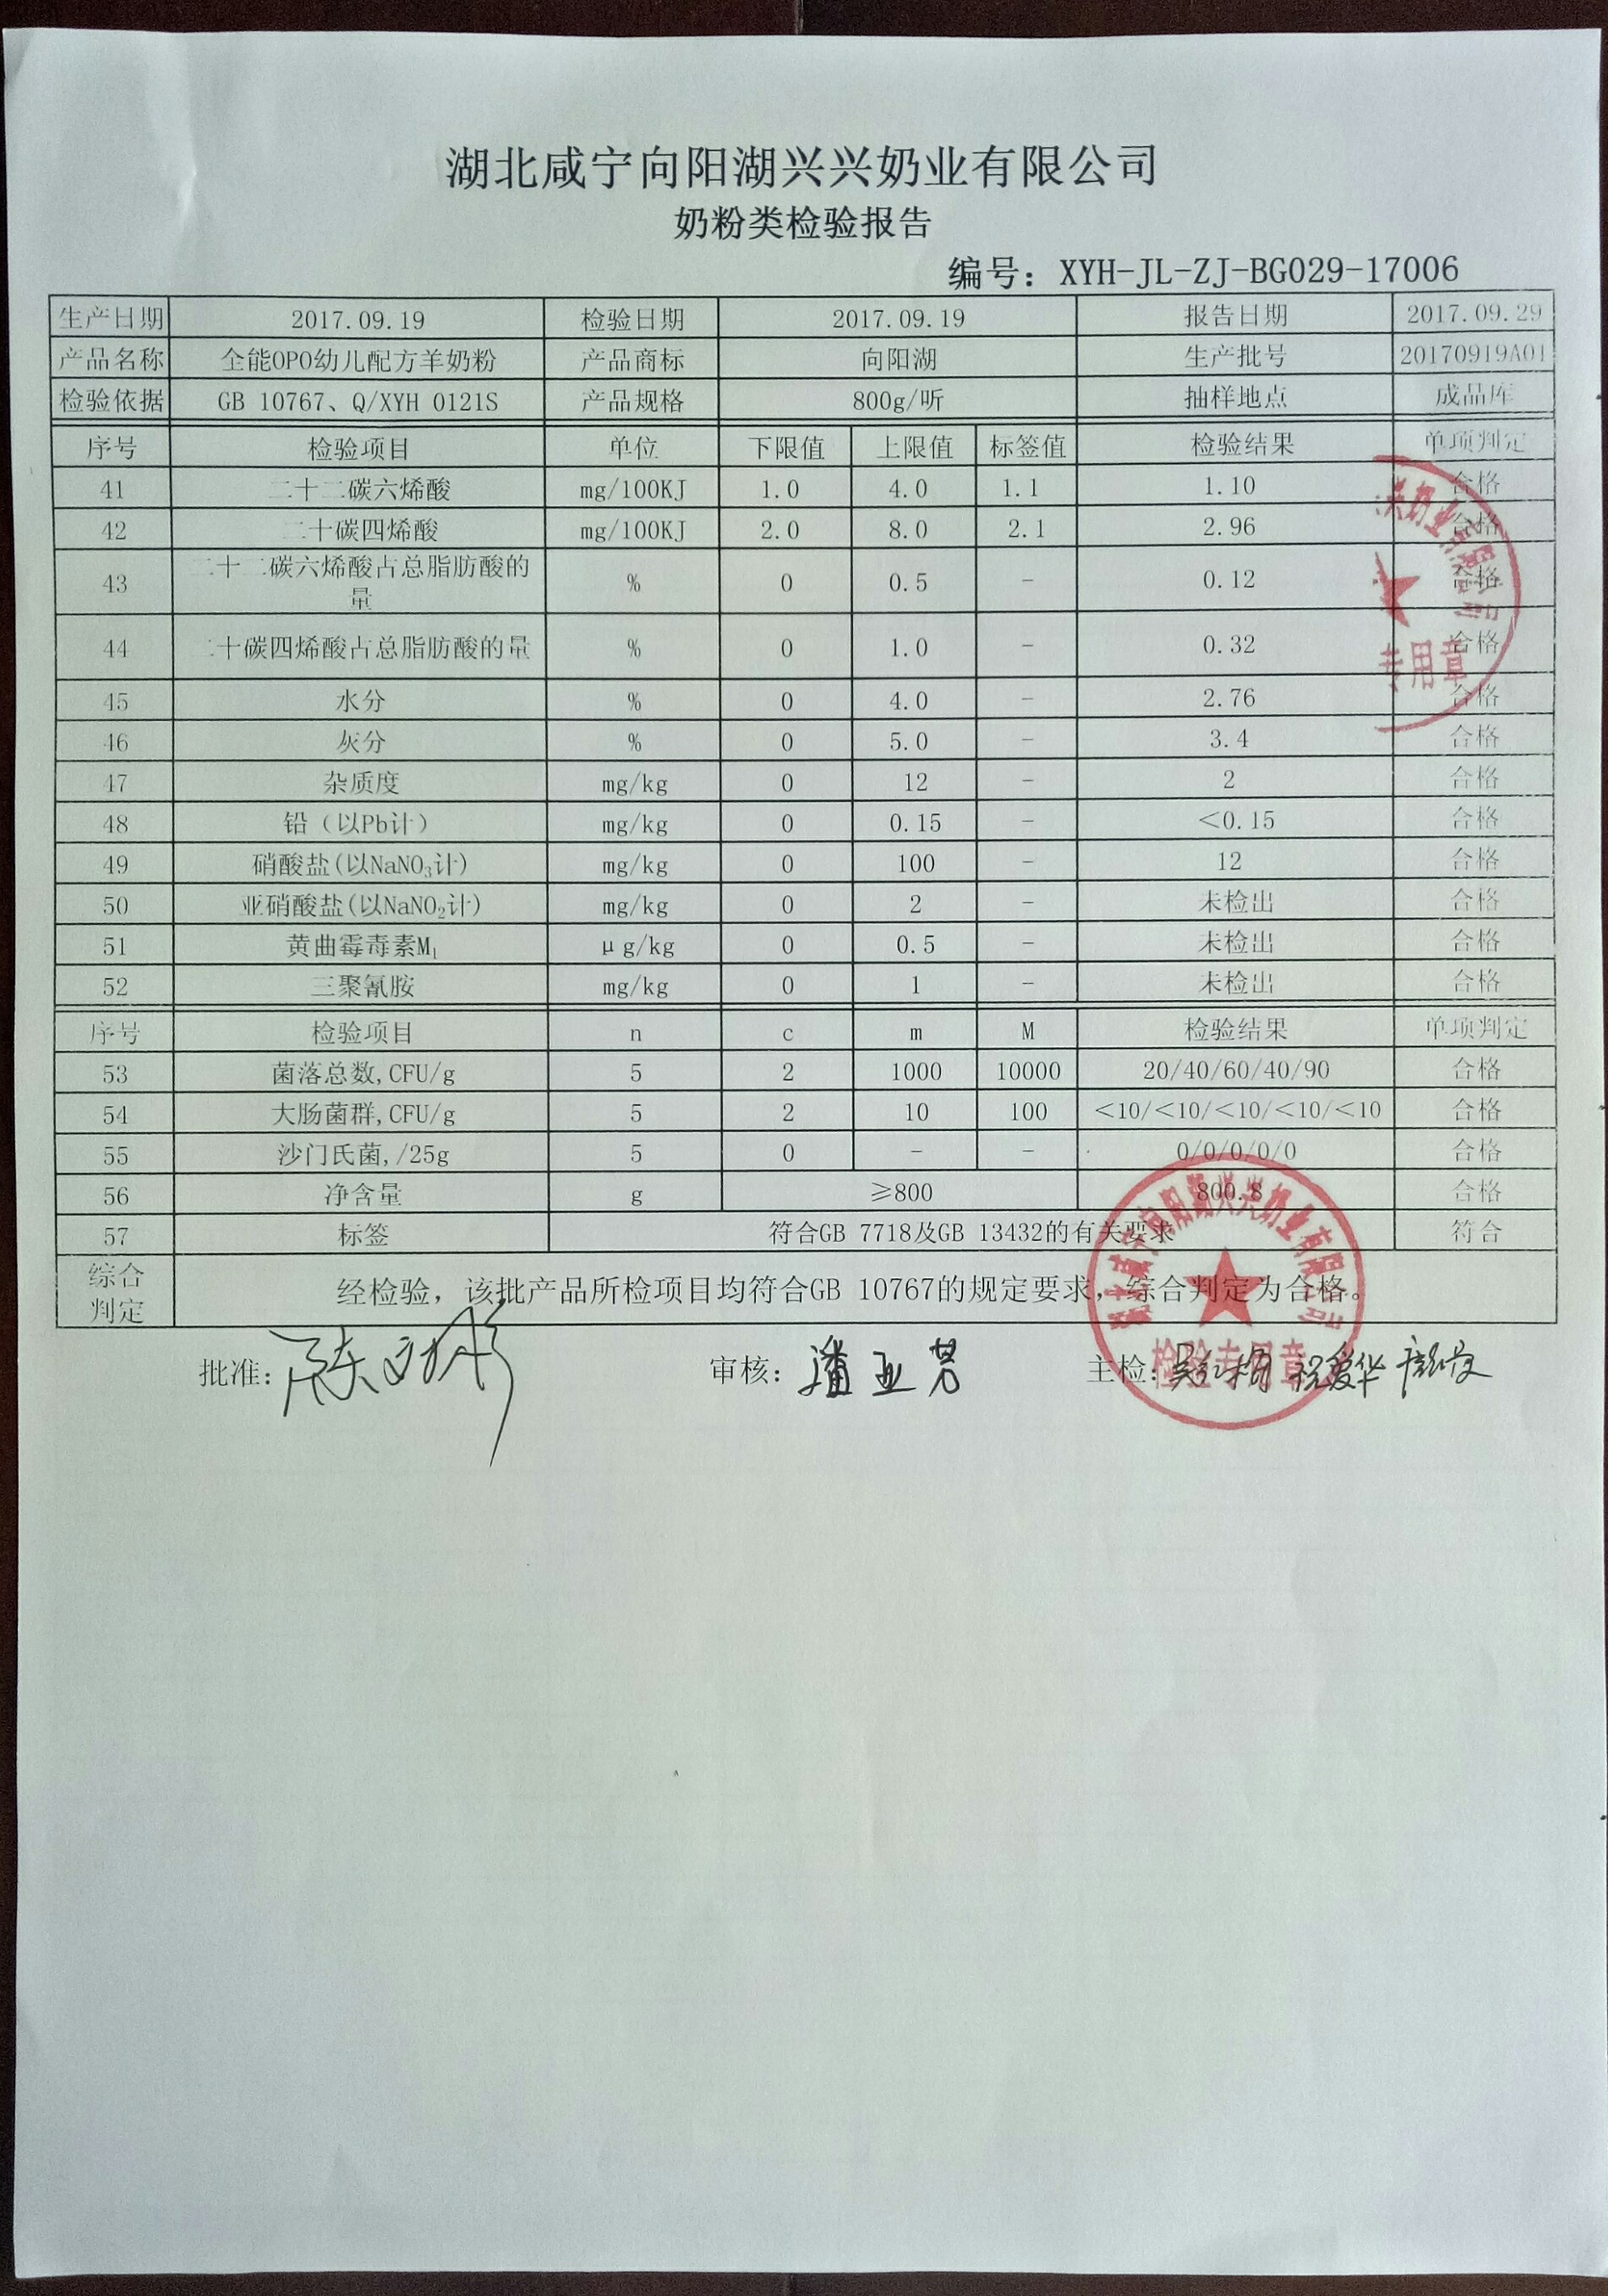 湖北咸宁向阳湖兴兴奶业有限公司
奶粉类检验报告
编号：XYH-JL-ZJ-BG029-17006
生产日期 2017.09.19 检验日期 2017.09.19 报告日期 2017.09.29
产品名称 全能OPO幼儿配方羊奶粉 产品商标 向阳湖 生产批号 20170919A01
检验依据 GB 10767、Q/XYH 0121S 产品规格 800g/听 抽样地点 成品库
序号 检验项目 单位 下限值 上限值 标签值 检验结果 单项判定
41 二十二碳六烯酸 mg/100KJ 1.0 4.0 1.1 1.10 合格
42 二十碳四烯酸 mg/100KJ 2.0 8.0 2.1 2.96 合格
43 二十二碳六烯酸占总脂肪酸的量 % 0 0.5 - 0.12 合格
44 二十碳四烯酸占总脂肪酸的量 % 0 1.0 - 0.32 合格
45 水分 % 0 4.0 - 2.76 合格
46 灰分 % 0 5.0 - 3.4 合格
47 杂质度 mg/kg 0 12 - 2 合格
48 铅（以Pb计） mg/kg 0 0.15 - <0.15 合格
49 硝酸盐(以NaNO₃计) mg/kg 0 100 - 12 合格
50 亚硝酸盐(以NaNO₂计) mg/kg 0 2 - 未检出 合格
51 黄曲霉毒素M₁ μg/kg 0 0.5 - 未检出 合格
52 三聚氰胺 mg/kg 0 1 - 未检出 合格
序号 检验项目 n c m M 检验结果 单项判定
53 菌落总数,CFU/g 5 2 1000 10000 20/40/60/40/90 合格
54 大肠菌群,CFU/g 5 2 10 100 <10/<10/<10/<10/<10 合格
55 沙门氏菌,/25g 5 0 - - 0/0/0/0/0 合格
56 净含量 g ≥800 800.8 合格
57 标签 符合GB 7718及GB 13432的有关要求 符合
综合判定 经检验，该批产品所检项目均符合GB 10767的规定要求，综合判定为合格。
批准： 审核：潘亚芳 主检：
奶业有限公司
专用章
湖北咸宁向阳湖兴兴奶业有限公司
检验专用章